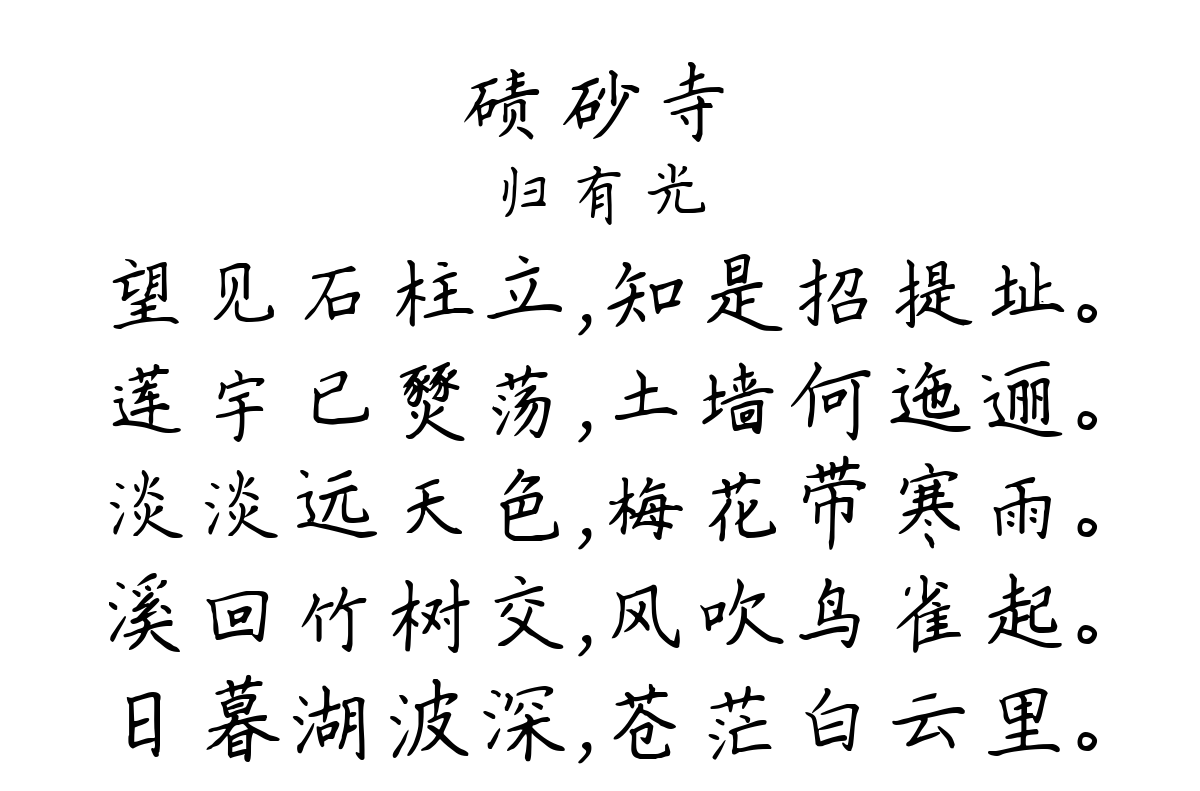 碛砂寺
归有光
望见石柱立,知是招提址。
莲宇已燹荡,土墙何迤逦。
淡淡远天色,梅花带寒雨。
溪回竹树交,风吹鸟雀起。
日暮湖波深,苍茫白云里。